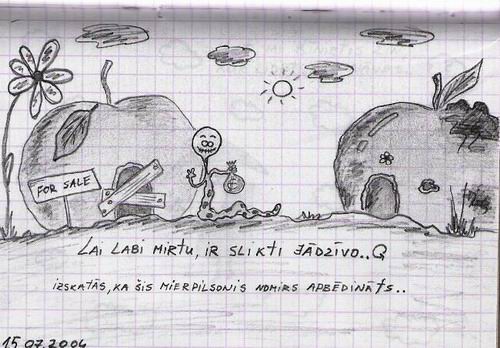 FOR SALE
LAI LABI MIRTU, IR SLIKTI JĀDZĪVO..
IZSKATĀS, KA ŠIS MIERPILSONIS NOMIRS APBĒDINĀTS..
15.07.2004